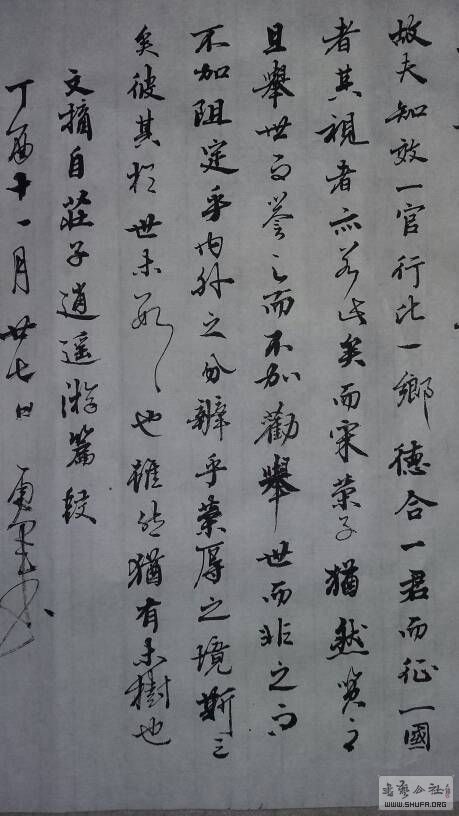 故夫知效一官行比一鄉德合一君而征一國
者其視者亦若此矣而宋榮子猶然笑之
且舉世而譽之而不加勸舉世而非之而
不加阻定乎內外之分辯乎榮辱之境斯已
矣彼其於世未數數也雖然猶有未樹也
文摘自莊子逍遥游篇段
丁酉十一月廿七日
書藝公社
WWW.SHUFA.ORG